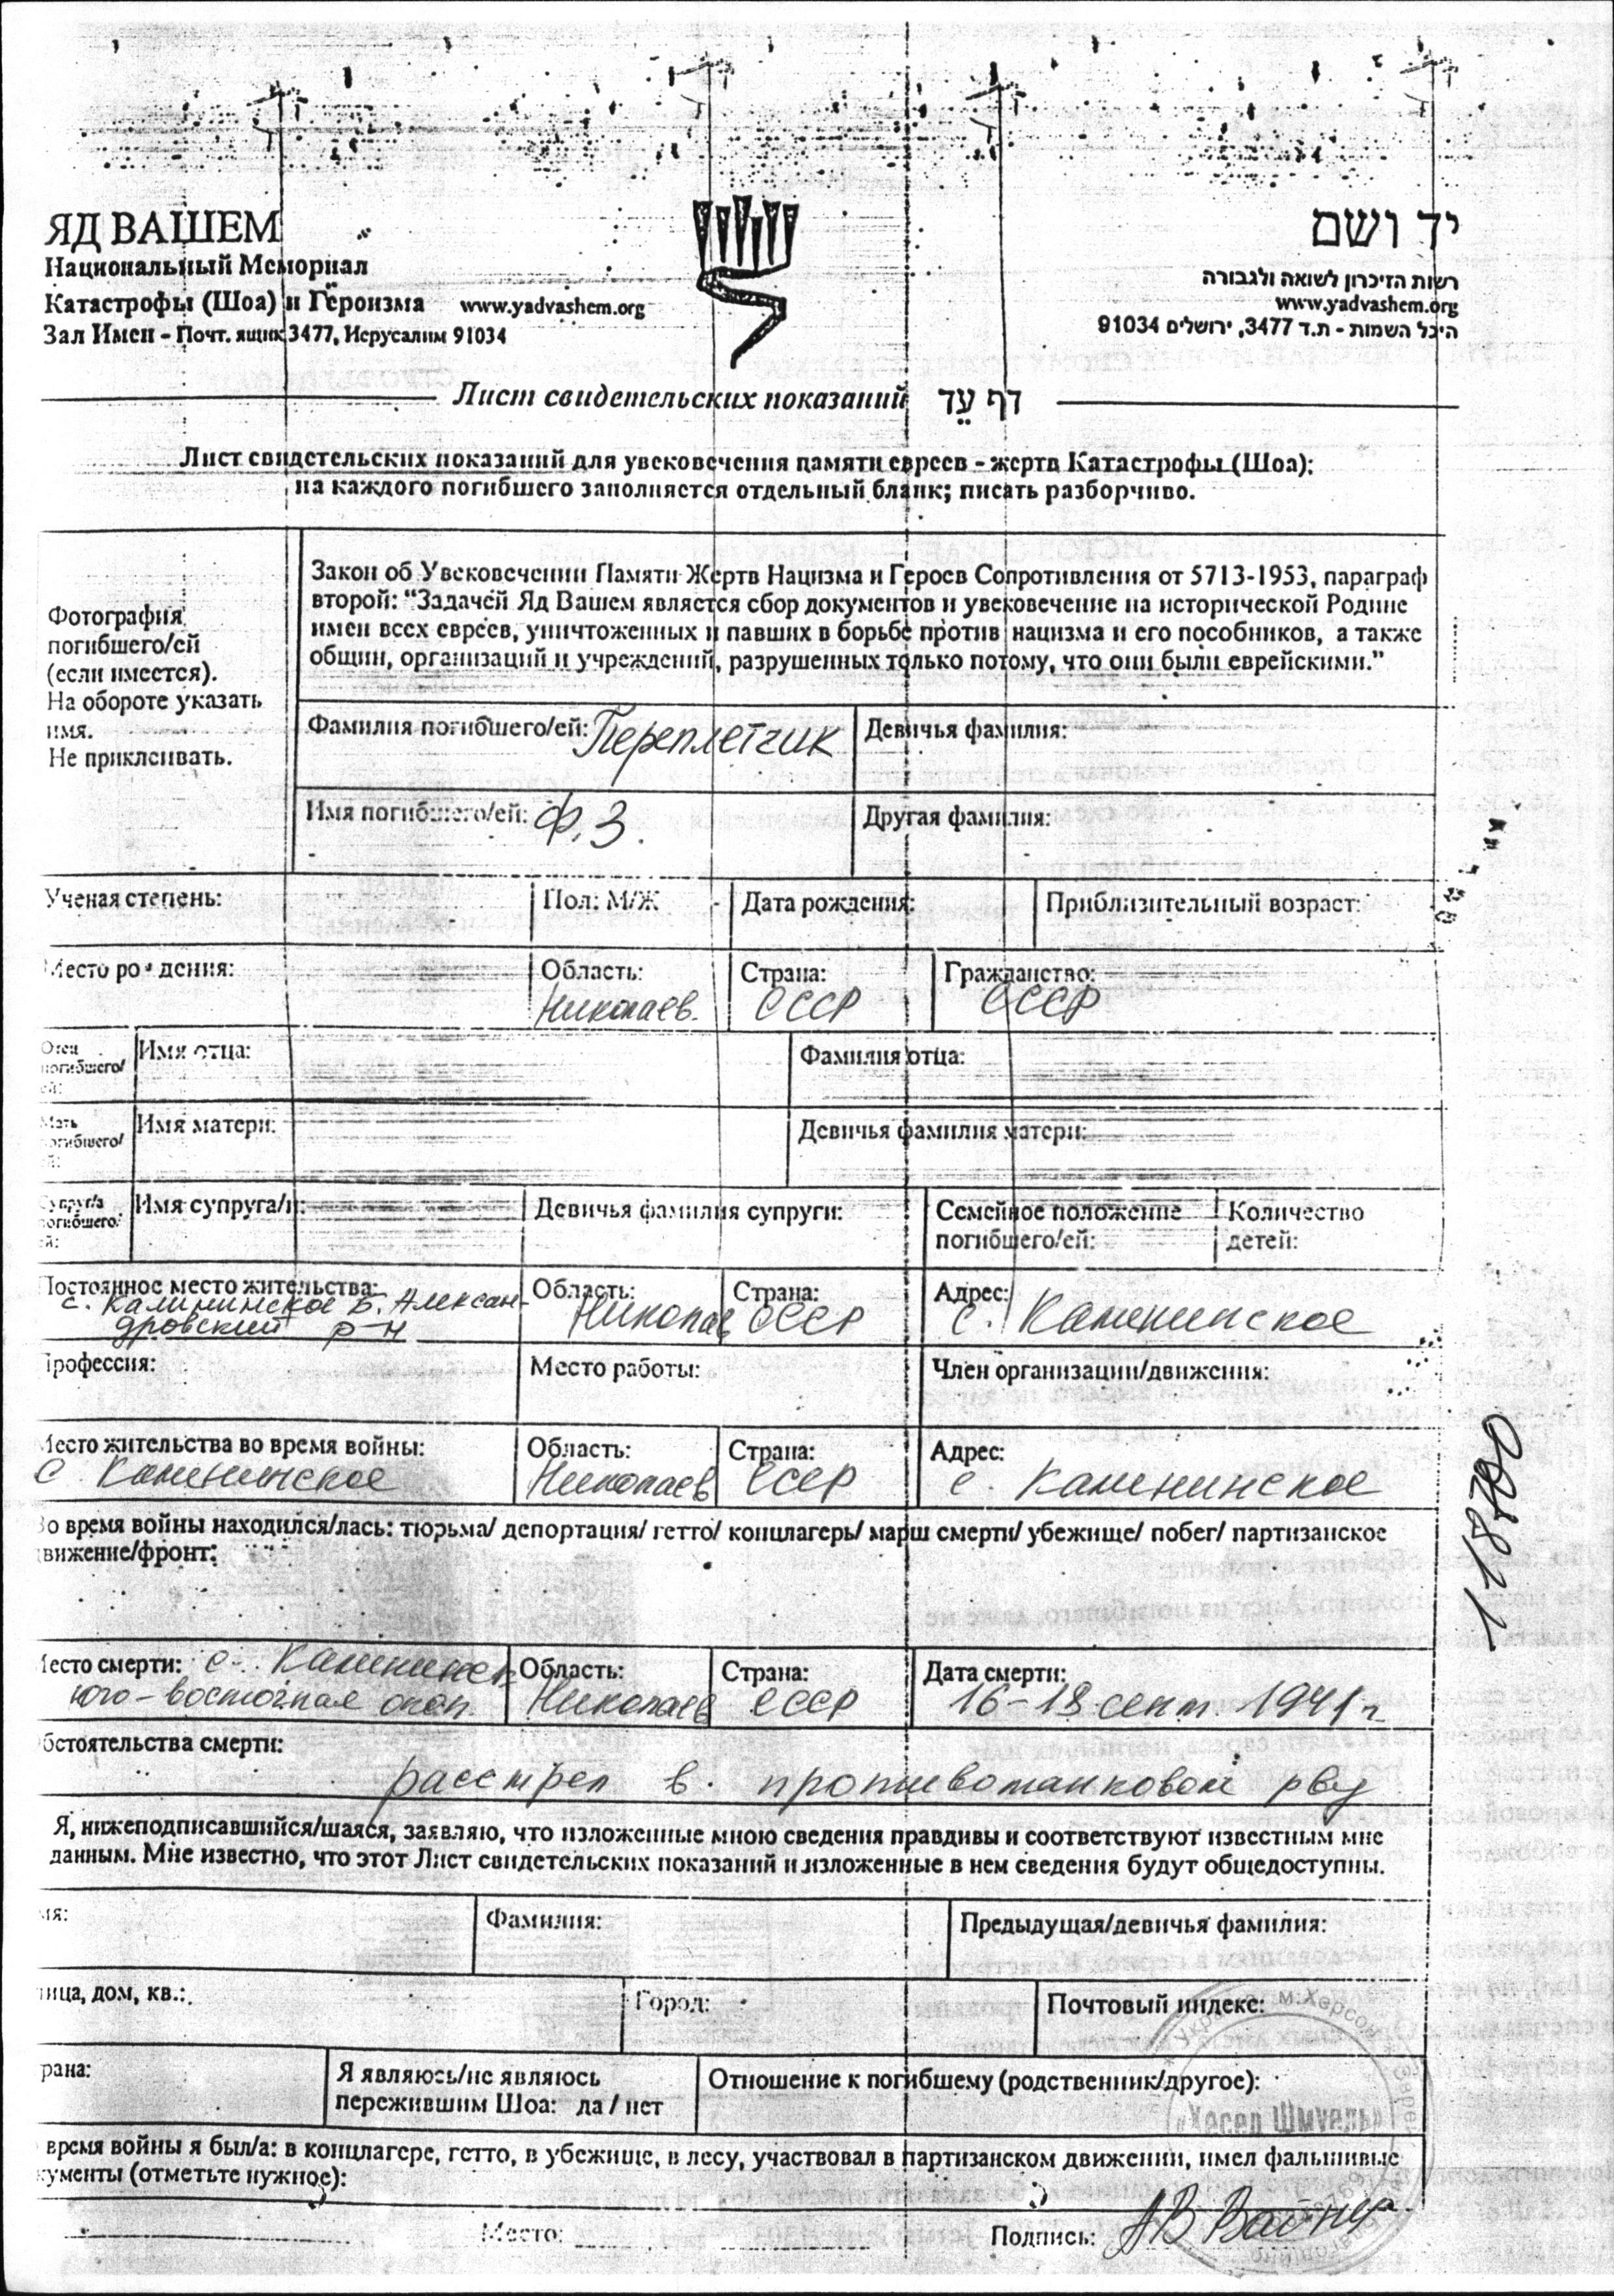 ЯД ВАШЕМ
Национальный Мемориал
Катастрофы (Шоа) и Героизма www.yadvashem.org
Зал Имен - Почт. ящик 3477, Иерусалим 91034
יד ושם
רשות הזיכרון לשואה ולגבורה
www.yadvashem.org
היכל השמות - ת.ד 3477, ירושלים 91034
Лист свидетельских показаний דף עֵד
Лист свидетельских показаний для увековечения памяти евреев - жертв Катастрофы (Шоа);
на каждого погибшего заполняется отдельный бланк; писать разборчиво.
Фотография
погибшего/ей
(если имеется).
На обороте указать
имя.
Не приклеивать.
Закон об Увековечении Памяти Жертв Нацизма и Героев Сопротивления от 5713-1953, параграф
второй: “Задачей Яд Вашем является сбор документов и увековечение на исторической Родине
имен всех евреев, уничтоженных и павших в борьбе против нацизма и его пособников, а также
общин, организаций и учреждений, разрушенных только потому, что они были еврейскими.”
Фамилия погибшего/ей: Переплетчик Девичья фамилия:
Имя погибшего/ей: Ф.З. Другая фамилия:
Ученая степень: Пол: М/Ж Дата рождения: Приблизительный возраст:
Место рождения: Область: Страна: Гражданство:
Николаев. СССР СССР
Отец погибшего/ей: Имя отца: Фамилия отца:
Мать погибшего/ей: Имя матери: Девичья фамилия матери:
Супруг/а погибшего/ей: Имя супруга/и: Девичья фамилия супруги: Семейное положение погибшего/ей: Количество детей:
Постоянное место жительства: Область: Страна: Адрес:
с. Калининское Б. Алексан-
дровский р-н Николаев СССР с. Калининское
Профессия: Место работы: Член организации/движения:
Место жительства во время войны: Область: Страна: Адрес:
с Калининское Николаев СССР с. Калининское
Во время войны находился/лась: тюрьма/ депортация/ гетто/ концлагерь/ марш смерти/ убежище/ побег/ партизанское
движение/фронт:
118700
Место смерти: с. Калининск Область: Страна: Дата смерти:
юго-восточная окол. Николаев СССР 16-18 сент. 1941 г
Обстоятельства смерти:
расстрел в противотанковом рву
Я, нижеподписавшийся/шаяся, заявляю, что изложенные мною сведения правдивы и соответствуют известным мне
данным. Мне известно, что этот Лист свидетельских показаний и изложенные в нем сведения будут общедоступны.
мя: Фамилия: Предыдущая/девичья фамилия:
лица, дом, кв.: Город: Почтовый индекс:
рана: Я являюсь/не являюсь пережившим Шоа: да / нет Отношение к погибшему (родственник/другое):
«Хесед Шмуель»
время войны я был/а: в концлагере, гетто, в убежище, в лесу, участвовал в партизанском движении, имел фальшивые
кументы (отметьте нужное):
Место: Подпись: АВ Вайнер